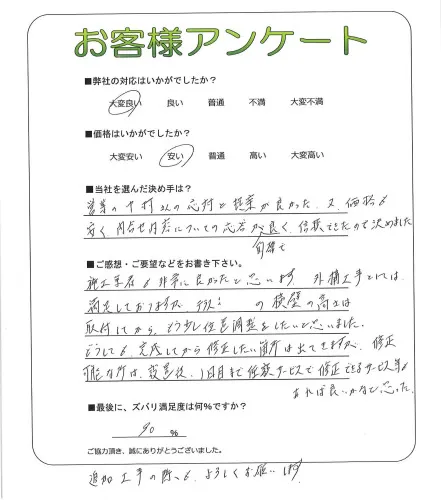 お客様アンケート
■弊社の対応はいかがでしたか？
大変良い 良い 普通 不満 大変不満
■価格はいかがでしたか？
大変安い 安い 普通 高い 大変高い
■当社を選んだ決め手は？
営業の中村さんの応対と提案が良かった。又、価格も
安く、問合せ内容についての応答が良く、信頼できたので決めました
■ご感想・ご要望などをお書き下さい。
施工業者も非常に良かったと思います。外構工事としては、
満足しておりますが、 の横壁の高さは
取付してから、もう少し位置調整をしたいと思いました。
どうしても、完成してから修正したい箇所は出てきますが、修正
可能な所は、設置後、1ヶ月まで無料サービスで修正できるサービス等も
あれば良いかなと思った。
■最後に、ズバリ満足度は何％ですか？
90 ％
ご協力頂き、誠にありがとうございました。
追加工事の際も、よろしくお願いします。